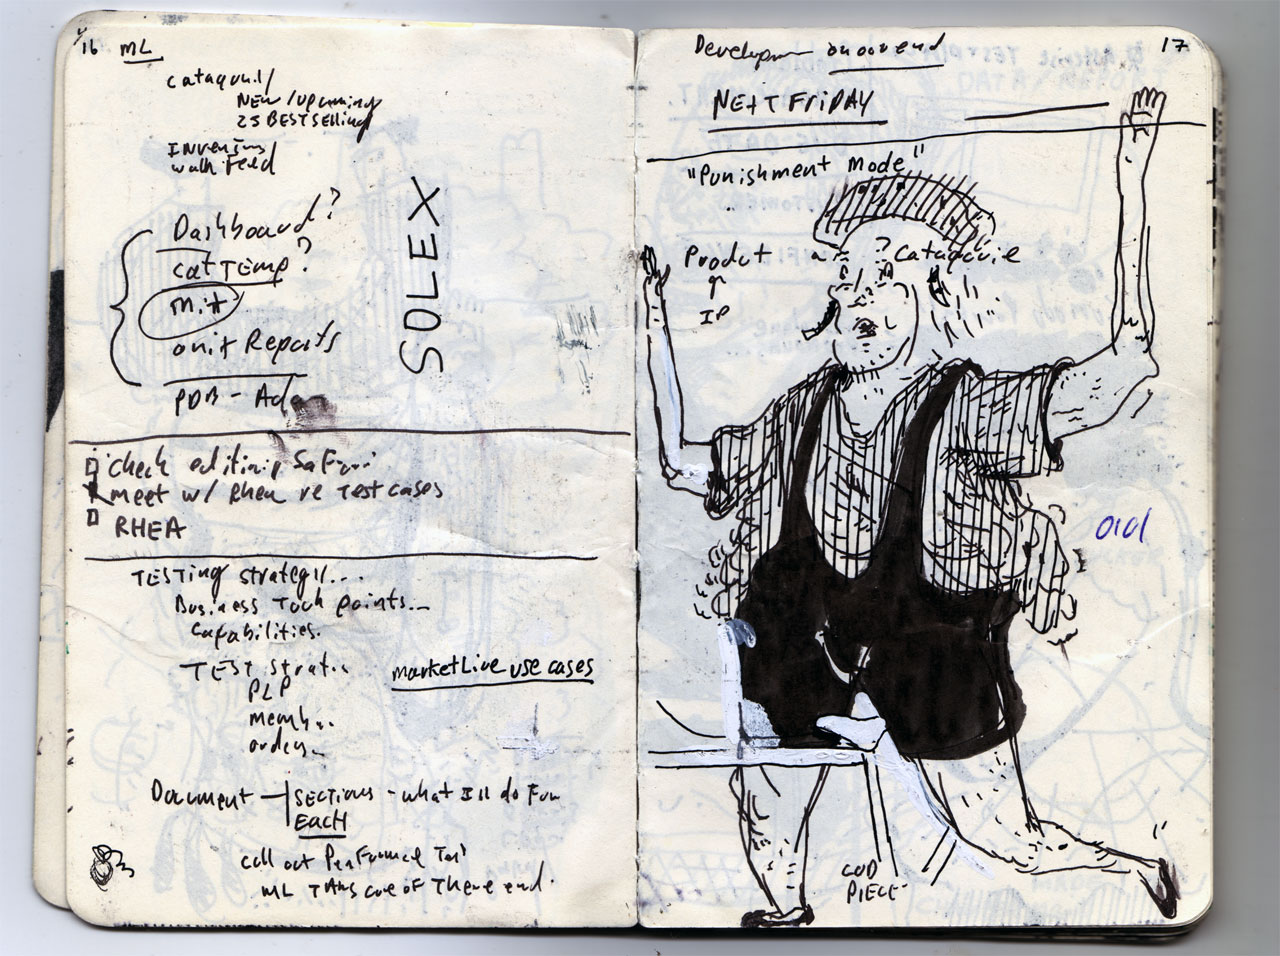 16 ML
NEW/UPCOMING
25 BESTSELLING
Feed
Dashboard?
CatTemp?
omit Reports
PDB - Ad
SOLEX
check editing Safari
meet w/ Rhea re Test cases
RHEA
TESTING strategy...
Business Touch points...
Capabilities.
TEST Strat
PLP
memb...
orders
MarketLive use cases
Document - SECTIONS - what I'll do For
EACH
call out Performed
ML of There end.
17
Developm on our end
NEXT FRIDAY
"Punishment Mode"
Product ? Categorie
IP
OIOI
COD
PIECE